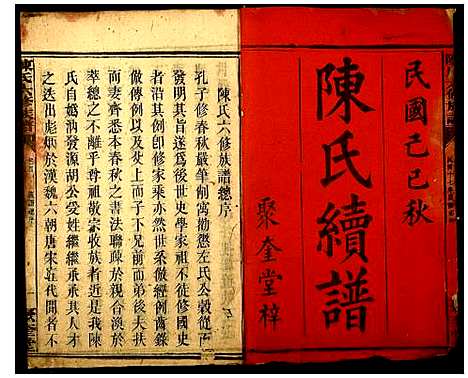 民國己巳秋
陳氏續譜
聚奎堂梓
陳氏六修族譜總序
孔子修春秋嚴筆削寓勸懲左氏公穀從而
發明其旨遂爲後世史學家祖不徒修國史
者沿其例卽修家乘亦然世系倣經例齒錄
倣傳例以及上而子下兄前而弟後夫扶
而妻齊悉本春秋之書法聯疎於親合渙於
萃總之不離乎尊祖敬宗收族者近是我陳
氏自嬀汭發源胡公受姓繼繼承承其人才
之迭出彪炳於漢魏六朝唐宋在代間者不